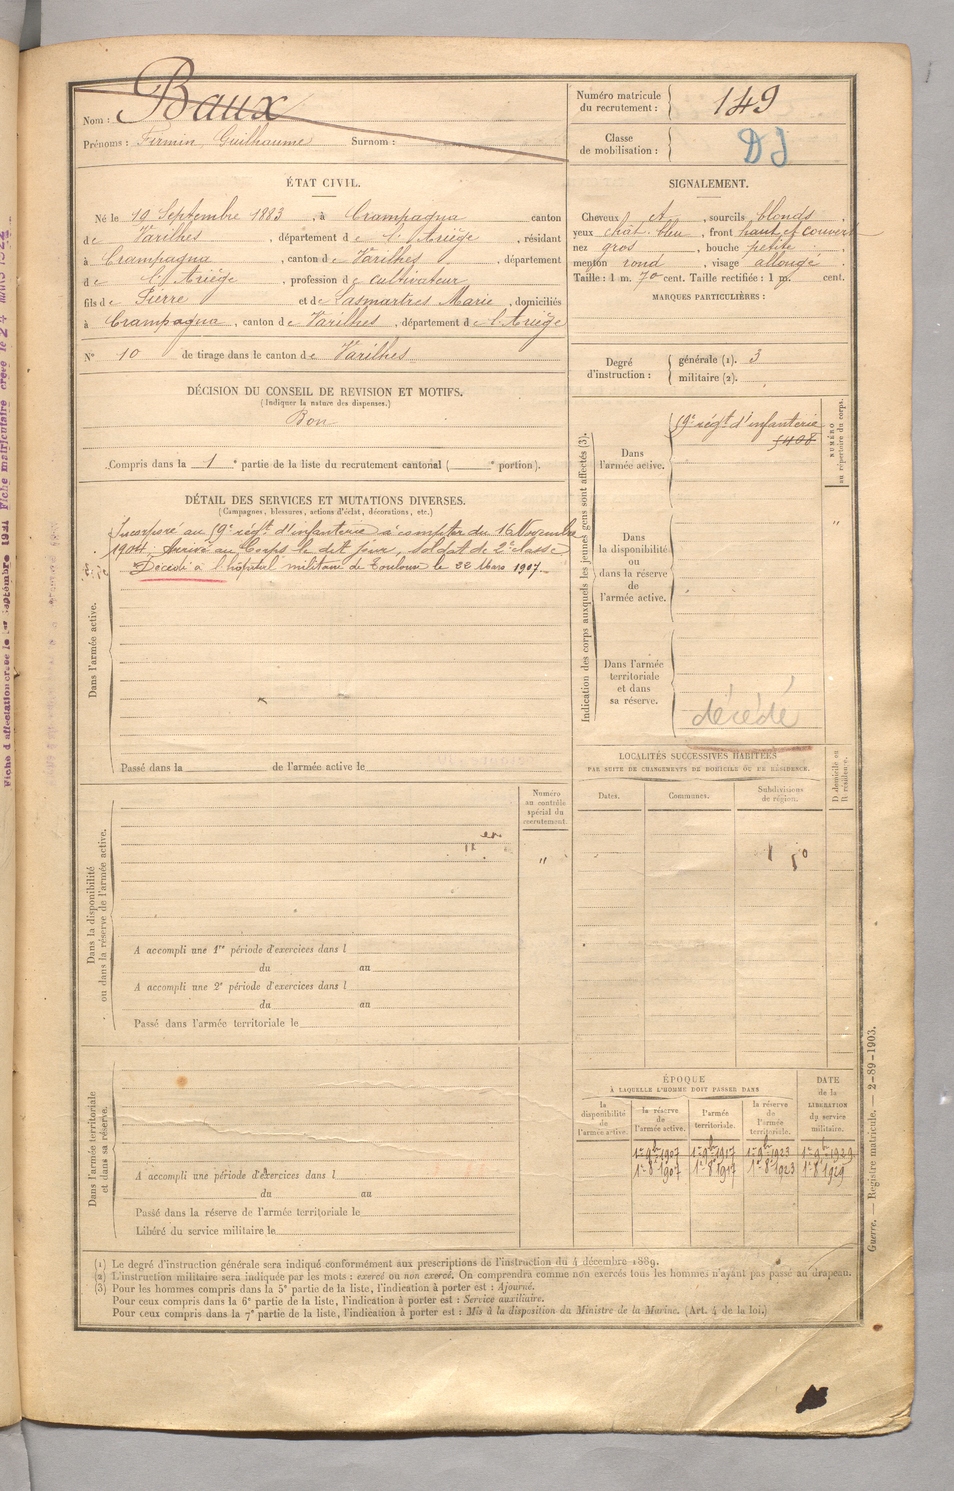 Nom : Baux
Prénoms : Firmin Guilhaume Surnom :
Numéro matricule du recrutement : 149
Classe de mobilisation : DJ
ÉTAT CIVIL.
Né le 19 Septembre 1883, à Crampagna canton
de Varilhes, département de l'Ariège, résidant
à Crampagna, canton de Varilhes, département
de l'Ariège, profession de cultivateur
fils de Pierre et de Lasmartres Marie, domiciliés
à Crampagna, canton de Varilhes, département de l'Ariège
N° 10 de tirage dans le canton de Varilhes
SIGNALEMENT.
Cheveux et, sourcils blonds,
yeux chât. bleu, front haut et couvert
nez gros, bouche petite,
menton rond, visage allongé.
Taille : 1 m. 70 cent. Taille rectifiée : 1 m. cent.
MARQUES PARTICULIÈRES :
Degré d'instruction :
générale (1). 3
militaire (2).
DÉCISION DU CONSEIL DE REVISION ET MOTIFS.
(Indiquer la nature des dispenses.)
Bon
Compris dans la 1e partie de la liste du recrutement cantonal ( e portion).
DÉTAIL DES SERVICES ET MUTATIONS DIVERSES.
(Campagnes, blessures, actions d'éclat, décorations, etc.)
Incorporé au 59e régt d'infanterie à compter du 16 Novembre
1904. Arrivé au Corps le dit jour, soldat de 2e classe
Décédé à l'hôpital militaire de Toulouse le 22 Mars 1907.
Dans l'armée active.
Passé dans la de l'armée active le
Indication des corps auxquels les jeunes gens sont affectés (3).
NUMÉRO au répertoire du corps.
Dans l'armée active.
59e régt d'infanterie
5408
Dans la disponibilité ou dans la réserve de l'armée active.
"
Dans l'armée territoriale et dans sa réserve.
décédé
LOCALITÉS SUCCESSIVES HABITÉES
PAR SUITE DE CHANGEMENTS DE DOMICILE OU DE RÉSIDENCE.
Dates.
Communes.
Subdivisions de région.
D. domicile ou R. résidence.
Dans la disponibilité ou dans la réserve de l'armée active.
Numéro au contrôle spécial du recrutement.
"
A accompli une 1re période d'exercices dans l
du au
A accompli une 2e période d'exercices dans l
du au
Passé dans l'armée territoriale le
Dans l'armée territoriale et dans sa réserve.
A accompli une période d'exercices dans l
du au
Passé dans la réserve de l'armée territoriale le
Libéré du service militaire le
ÉPOQUE
À LAQUELLE L'HOMME DOIT PASSER DANS
la disponibilité de l'armée active.
la réserve de l'armée active.
l'armée territoriale.
la réserve de l'armée territoriale.
DATE de la LIBÉRATION du service militaire.
1er 9bre 1907 1er 9bre 1917 1er 9bre 1923 1er 9bre 1929
1er 8bre 1907 1er 8bre 1917 1er 8bre 1923 1er 8bre 1929
(1) Le degré d'instruction générale sera indiqué conformément aux prescriptions de l'instruction du 4 décembre 1889.
(2) L'instruction militaire sera indiquée par les mots : exercé ou non exercé. On comprendra comme non exercés tous les hommes n'ayant pas passé au drapeau.
(3) Pour les hommes compris dans la 5e partie de la liste, l'indication à porter est : Ajourné.
Pour ceux compris dans la 6e partie de la liste, l'indication à porter est : Service auxiliaire.
Pour ceux compris dans la 7e partie de la liste, l'indication à porter est : Mis à la disposition du Ministre de la Marine. (Art. 4 de la loi.)
Guerre. — Registre matricule. — 2-89-1903.